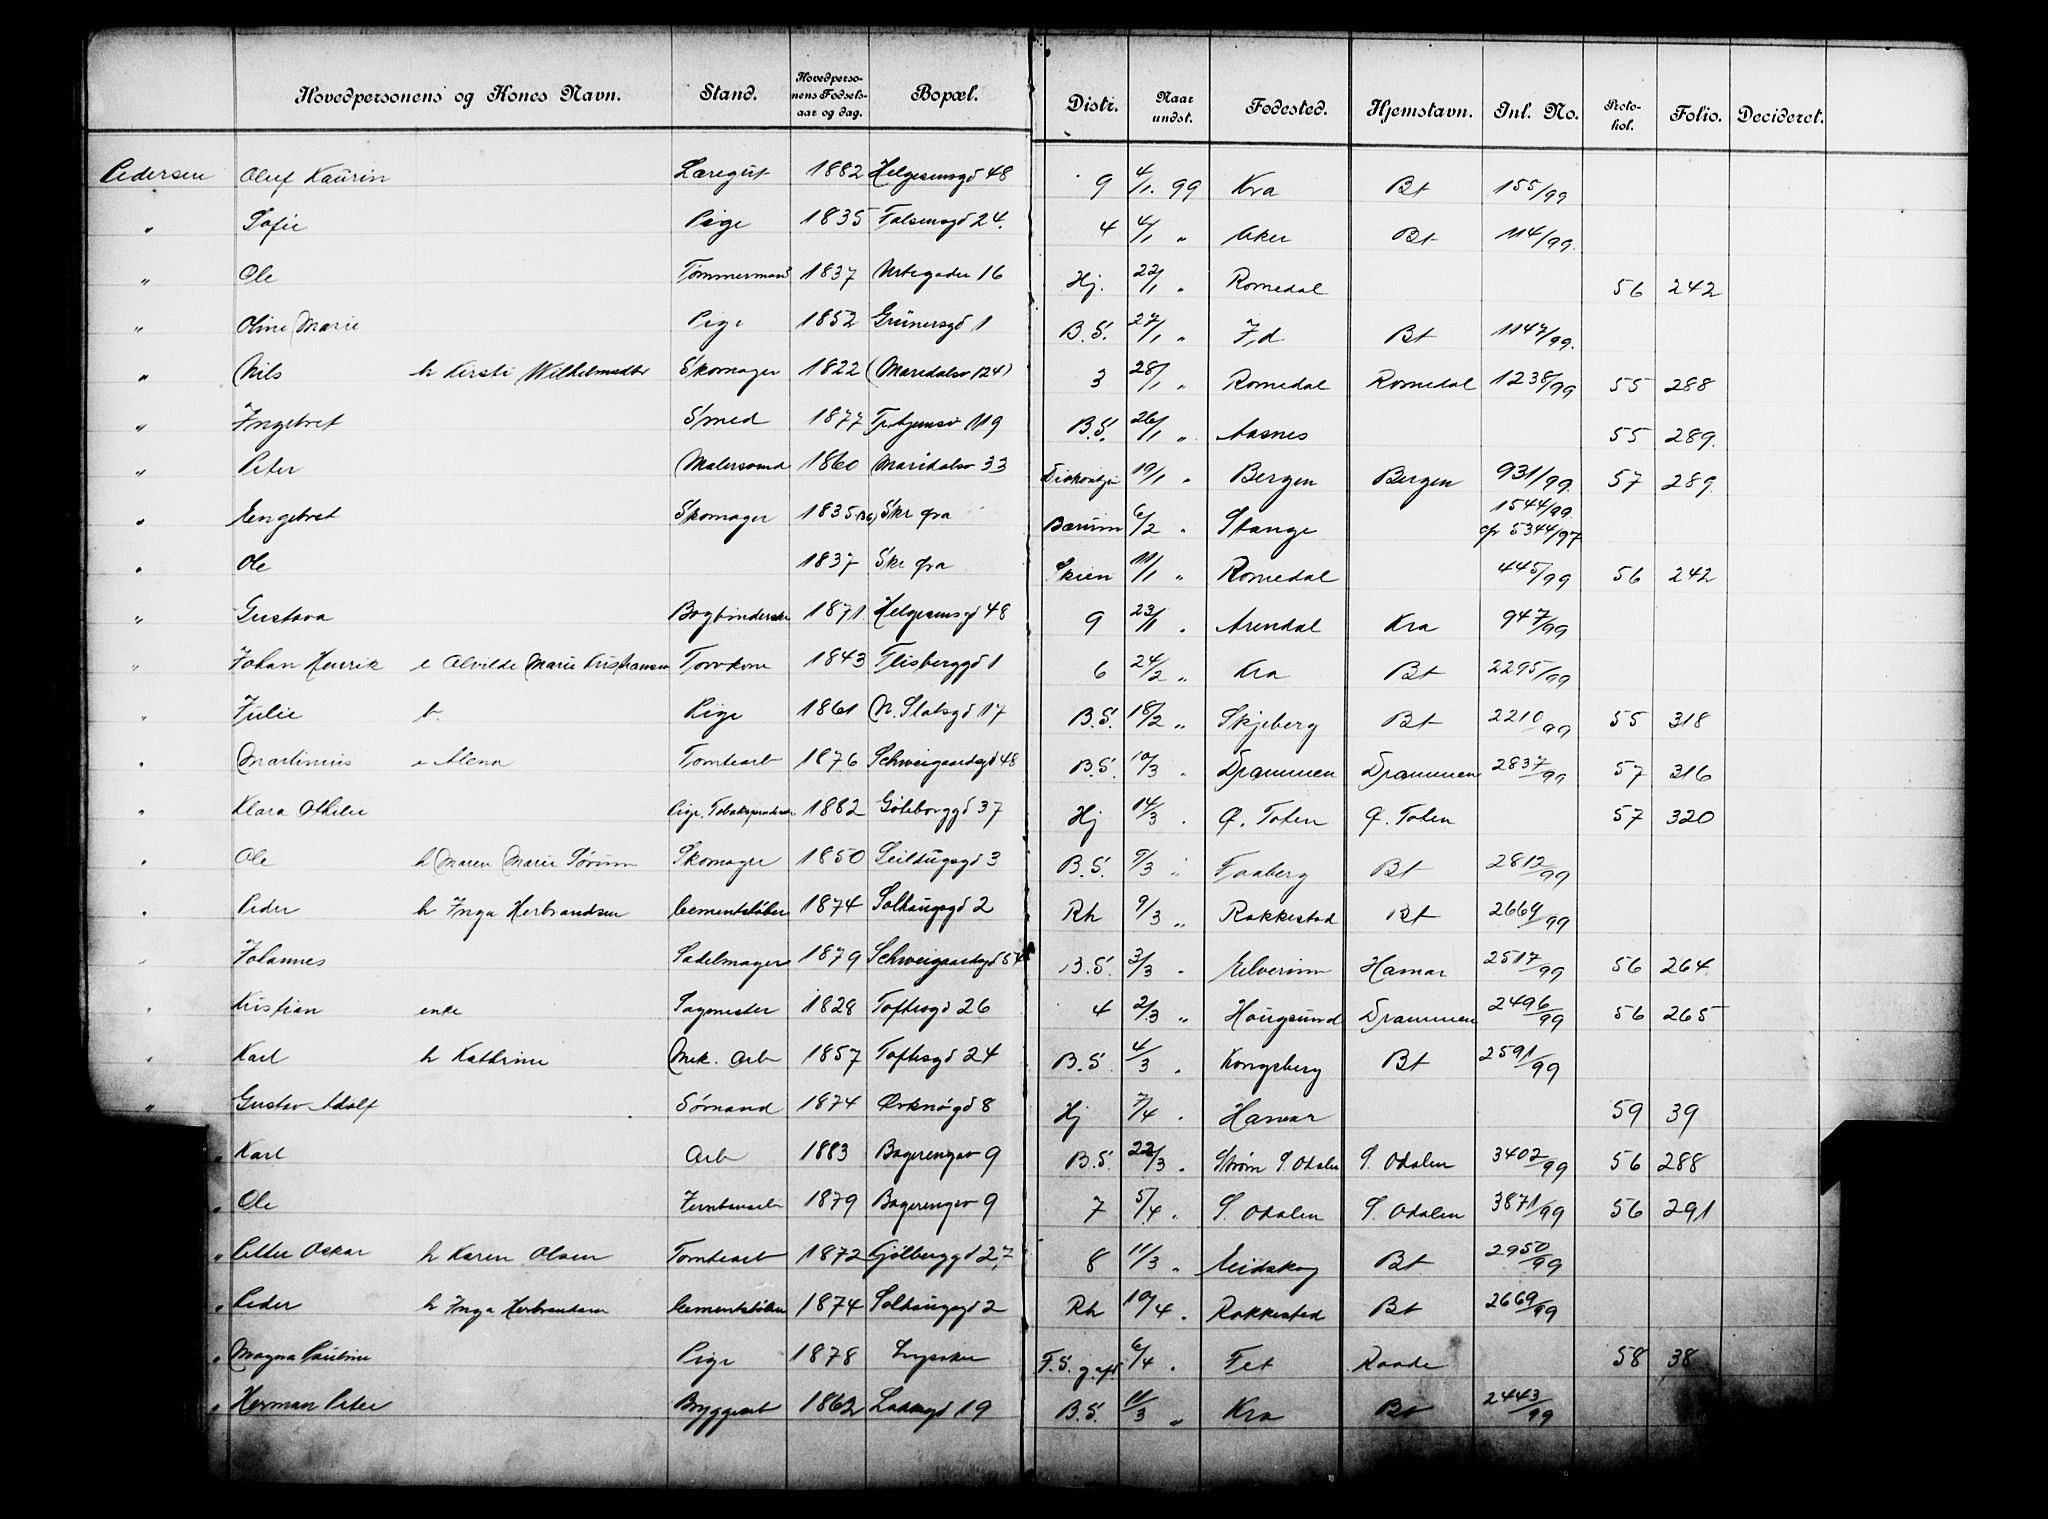 Hovedpersonens og Kones Navn. Stand. Hovedpersonens Fødselsaar og dag. Bopæl. Distr. Naar undst. Fødested. Hjemstavn. Inl. No. Protokol. Folio. Decideret.
Pedersen Oluf Kaurin Læregut 1882 Helgesensgd 48 9 4/1 99 Kra Bt 155/99
" Sofie Pige 1835 Falsensgd 24. 4 4/1 " Aker Bt 114/99.
" Ole Tømmermand 1837 Urtegaden 16 Hj. 22/1 " Romedal 56 242
" Oline Marie Pige 1852 Grünersgd 1 B.S. 27/1 " Id Bt 1147/99.
" Nils h Kirsti Wilhelmsdtr Skomager 1822 (Maridalsv 124) 3 28/1 " Romedal Romedal 1238/99 55 288
" Ingebret Smed 1877 Tr.hjemsv 119 B.S. 26/1 " Aasnes 55 289.
" Peter Malersvend 1860 Maridalsv 33 19/1 " Bergen Bergen 931/99. 57 289.
" Engebret Skomager 1835 (36) Skr fra Bærum 6/2 " Stange 1544/99. cfr 5344/97
" Ole 1837 Skr fra Skien 11/1 " Romedal 445/99 56 242
" Gustava Bogbinderske 1871 Helgesensgd 48 9 23/1 " Arendal Kra 947/99
" Johan Henrik e Alvilde Marie Kristiansen Torvkone 1843 Flisberggd 1 6 24/2 " Kra Bt 2295/99
" Julie b. Pige 1861 N. Slotsgd 17 B.S. 18/2 " Skjeberg Bt 2210/99 55 318
" Martinius e Alena Tomtearb 1876 Schweigaardsgd 48 B.S. 10/3 " Drammen Drammen 2837/99 57 316
" Klara Othilie Pige, Tobakspinderske 1882 Göteborggd 37 Hj 14/3 " Ø. Toten Ø. Toten 57 320
" Ole h Maren Marie Sørum Skomager 1850 Seildugsgd 3 B.S. 9/3 " Faaberg Bt 2812/99
" Peder h Inga Herbrandsen Cementstøber 1874 Solhaugsgd 2 Rh 9/3 " Rakkestad Bt 2669/99
" Johannes Sadelmager 1879 Schweigaardsgd 54 B.S. 3/3 " Elverum Hamar 2517/99 56 264.
" Kristian enke Sagmester 1828 Toftesgd 26 4 2/3 " Hougsund Drammen 2496/99 56 265
" Karl h Kathrine Mek. Arb 1857 Toftesgd 24 B.S. 4/3 " Kongsberg Bt 2591/99
" Gustav Adolf Sømand 1874 Orknøgd 8 Hj 7/4 " Hamar 59 39
" Karl Arb 1883 Vaalerengav 9 B.S. 22/3 " Strøm S. Odalen S. Odalen 3402/99 56 288
" Ole Jernbanearb 1879 Vaalerengav 9 7 5/4 " S. Odalen S. Odalen 3871/99 56 291
" Petter Oskar h Karen Olsen Tomtearb 1872 Kjølberggd 27 8 11/3 " Eidskog Bt 2950/99
" Peder h Inga Herbrandsen Cementstøber 1874 Solhaugsgd 2 Rh 19/4 " Rakkestad Bt 2669/99
" Magna Pauline Pige 1878 Lysaker F.S. g.afd 6/4 " Fet Raade 58 38
" Herman Peter Byggearb 1862 Lakkegd 19 B.S. 11/3 " Kra Bt 2443/99